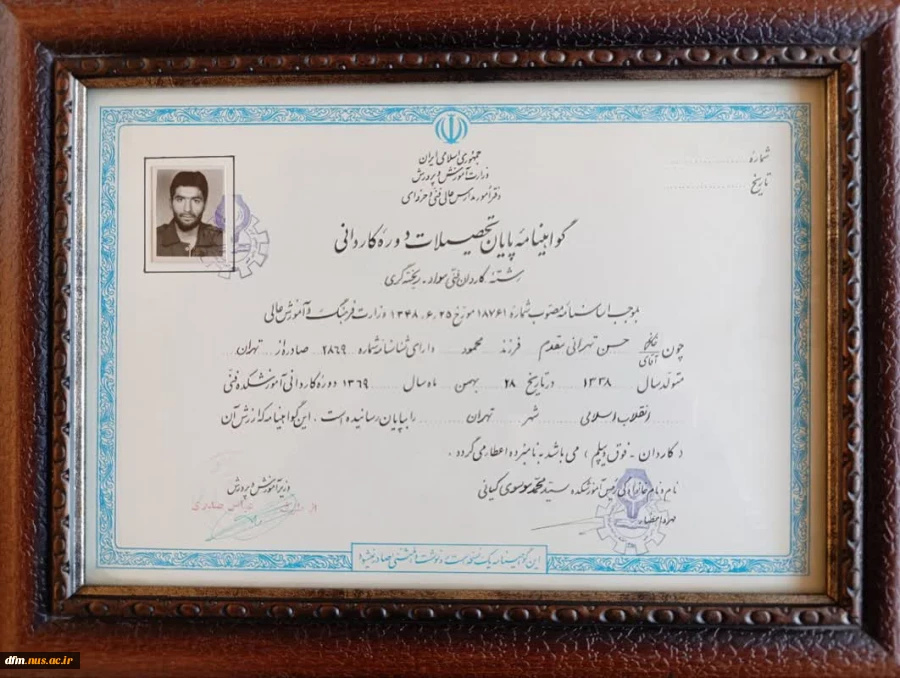 جمهوری اسلامی ایران
وزارت آموزش و پرورش
دفتر امور مدارس عالی فنی و حرفه‌ای
شمارهٔ
تاریخ
گواهینامهٔ پایان تحصیلات دورهٔ کاردانی
رشتهٔ کاردان فنی مواد - ریخته‌گری
بموجب اساسنامه مصوب شمارهٔ ۱۸۷۶۱ مورخ ۱۳۴۸،۶،۲۵ وزارت فرهنگ و آموزش عالی
چون خانم آقای حسن تهرانی مقدم فرزند محمود دارای شناسنامه شماره ۲۸۶۹ صادره از تهران
متولد سال ۱۳۳۸ در تاریخ ۲۸ بهمن ماه سال ۱۳۶۹ دورهٔ کاردانی آموزشکده فنی
انقلاب اسلامی شهر تهران را بپایان رسانیده است. این گواهینامه که ارزش آن
(کاردان - فوق دیپلم) می باشد به نامبرده اعطا می گردد.
نام و نام خانوادگی رئیس آموزشکده سید محمد موسوی کیانی
مهر و امضاء
وزیر آموزش و پرورش
از طرف عباس صدری
این گواهینامه یک نسخه است و رونوشت یا المثنی صادر نمیشود
dfm.nus.ac.ir